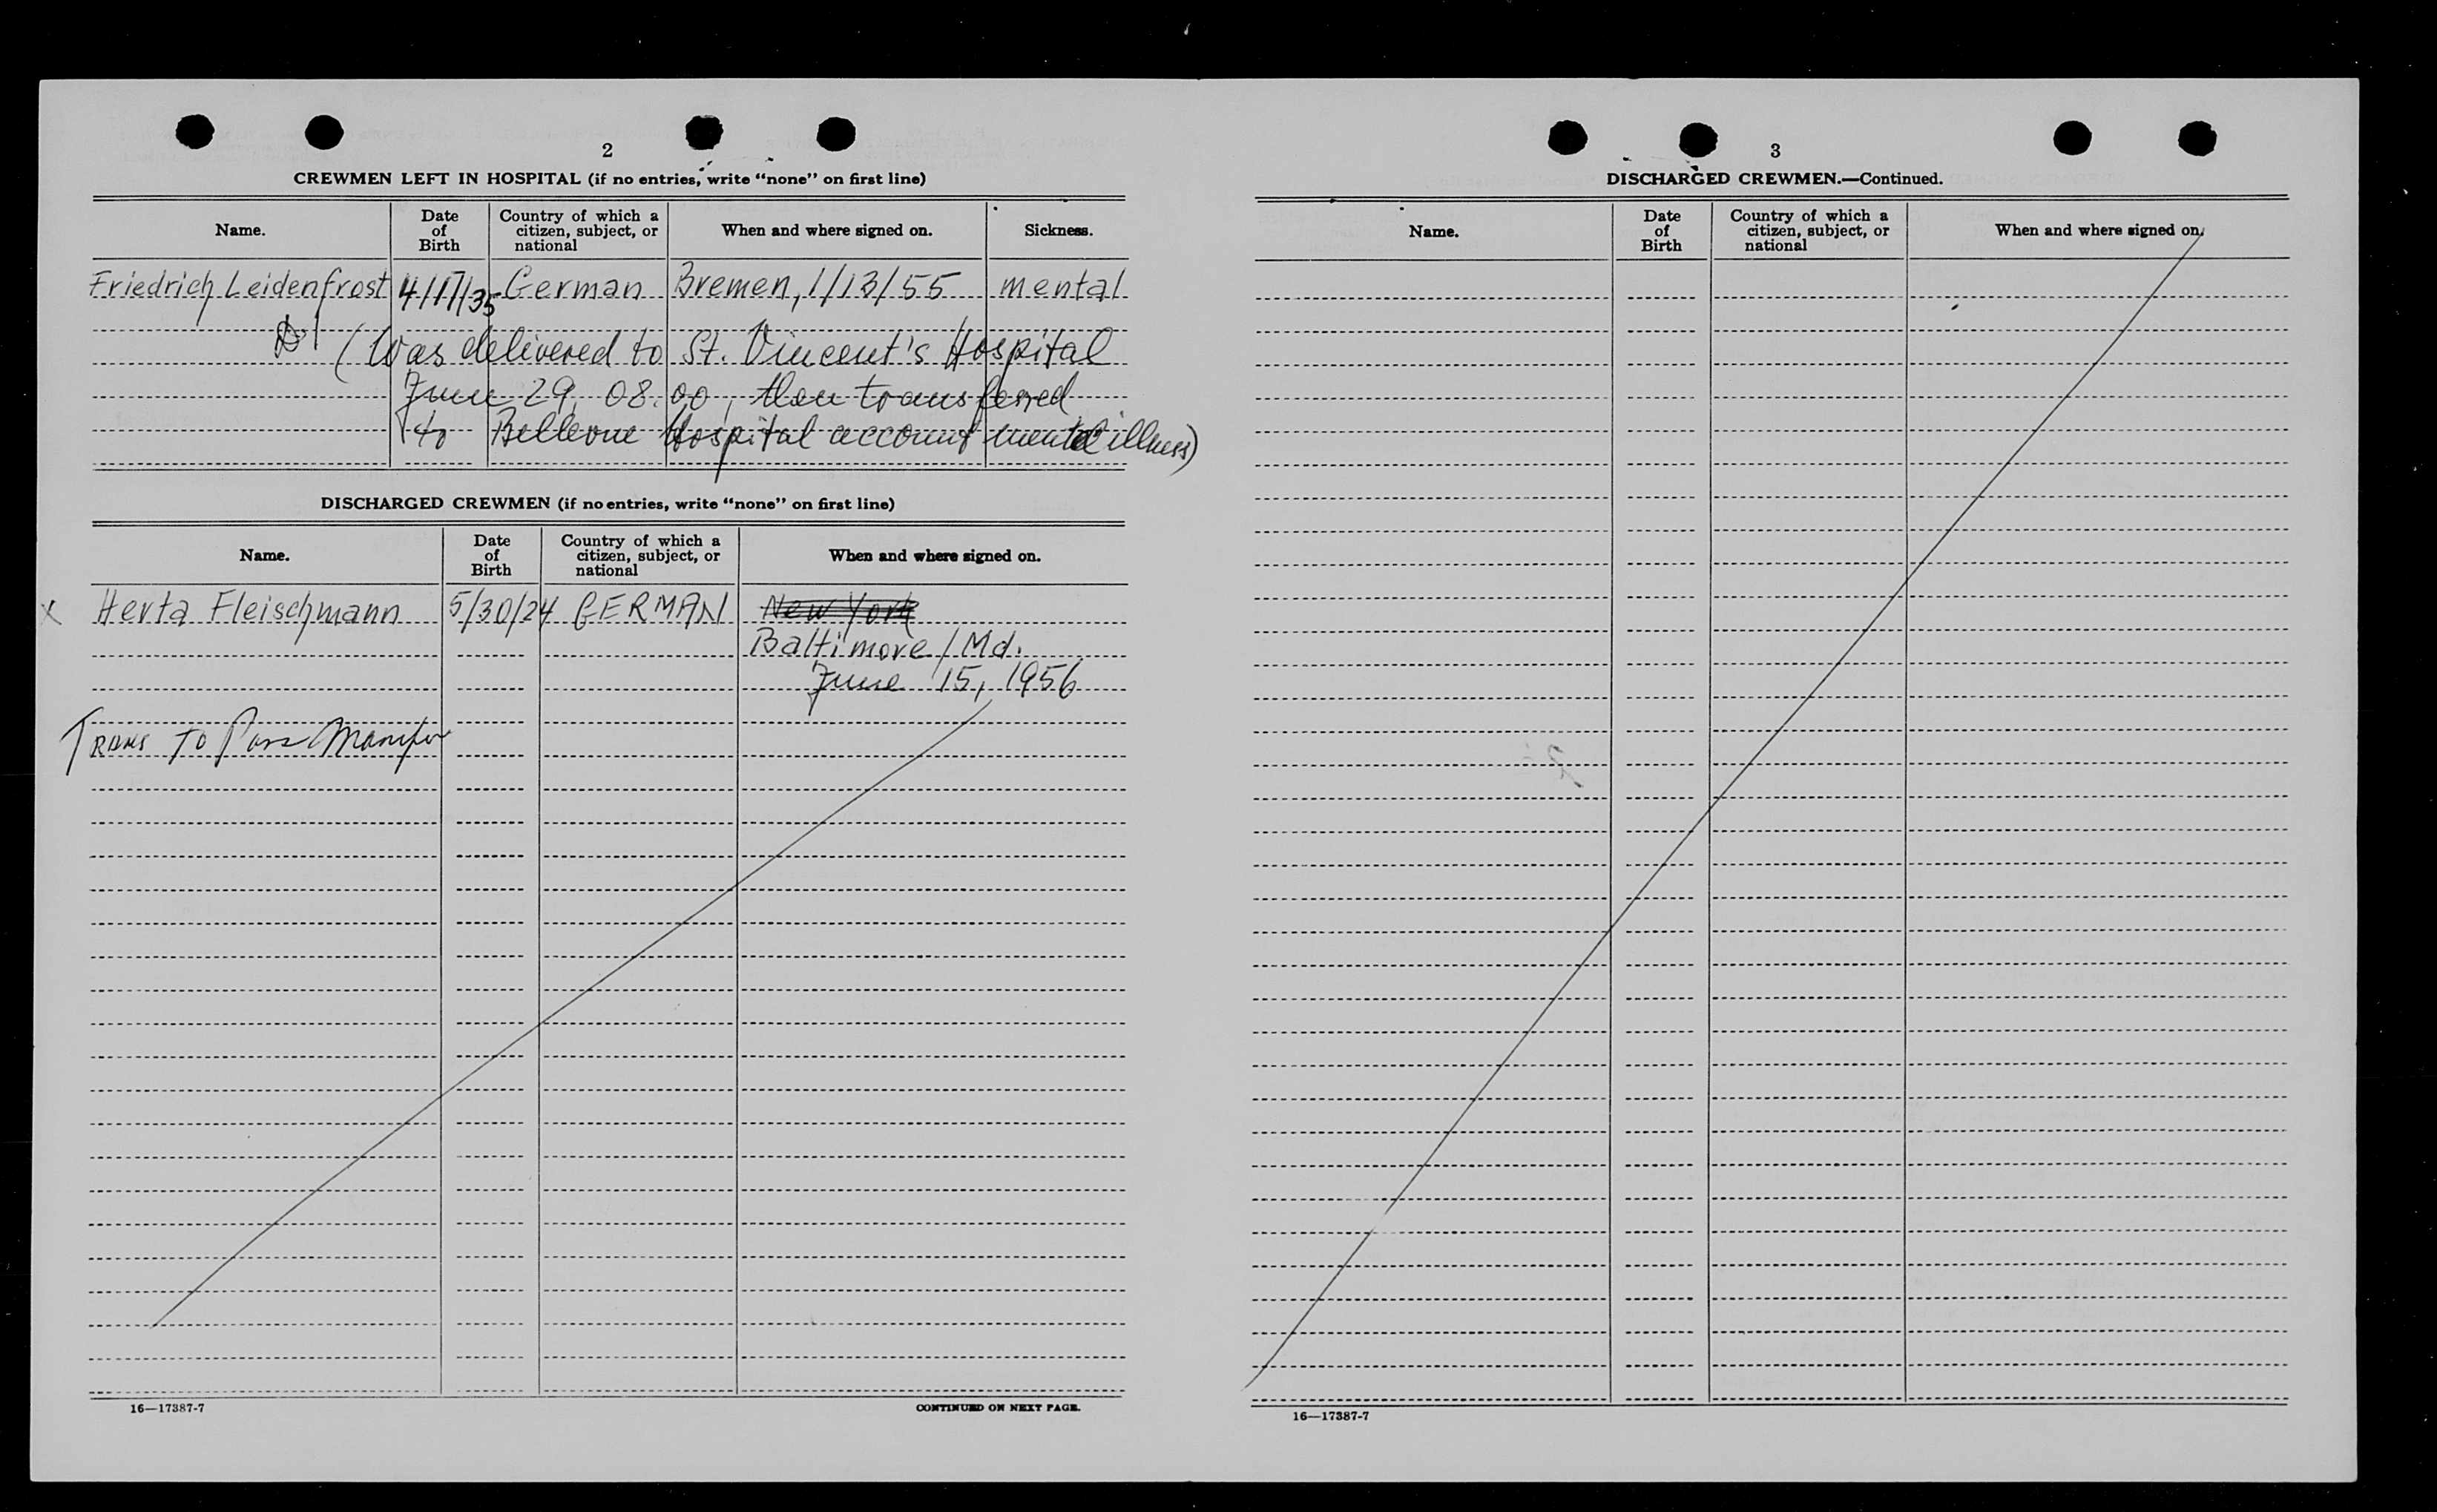 2
CREWMEN LEFT IN HOSPITAL (if no entries, write “none” on first line)
Name. Date of Birth Country of which a citizen, subject, or national When and where signed on. Sickness.
Friedrich Leidenfrost 4/17/35 German Bremen, 1/13/55 mental
(Was delivered to St. Vincent's Hospital
June 29, 08.00, then transferred
to Bellevue Hospital account mental illness)
DISCHARGED CREWMEN (if no entries, write “none” on first line)
Name. Date of Birth Country of which a citizen, subject, or national When and where signed on.
x Herta Fleischmann 5/30/24 GERMAN New York
Baltimore / Md.
June 15, 1956
TRANS TO Pass
16—17387-7 CONTINUED ON NEXT PAGE.
3
DISCHARGED CREWMEN.—Continued.
Name. Date of Birth Country of which a citizen, subject, or national When and where signed on.
16—17387-7